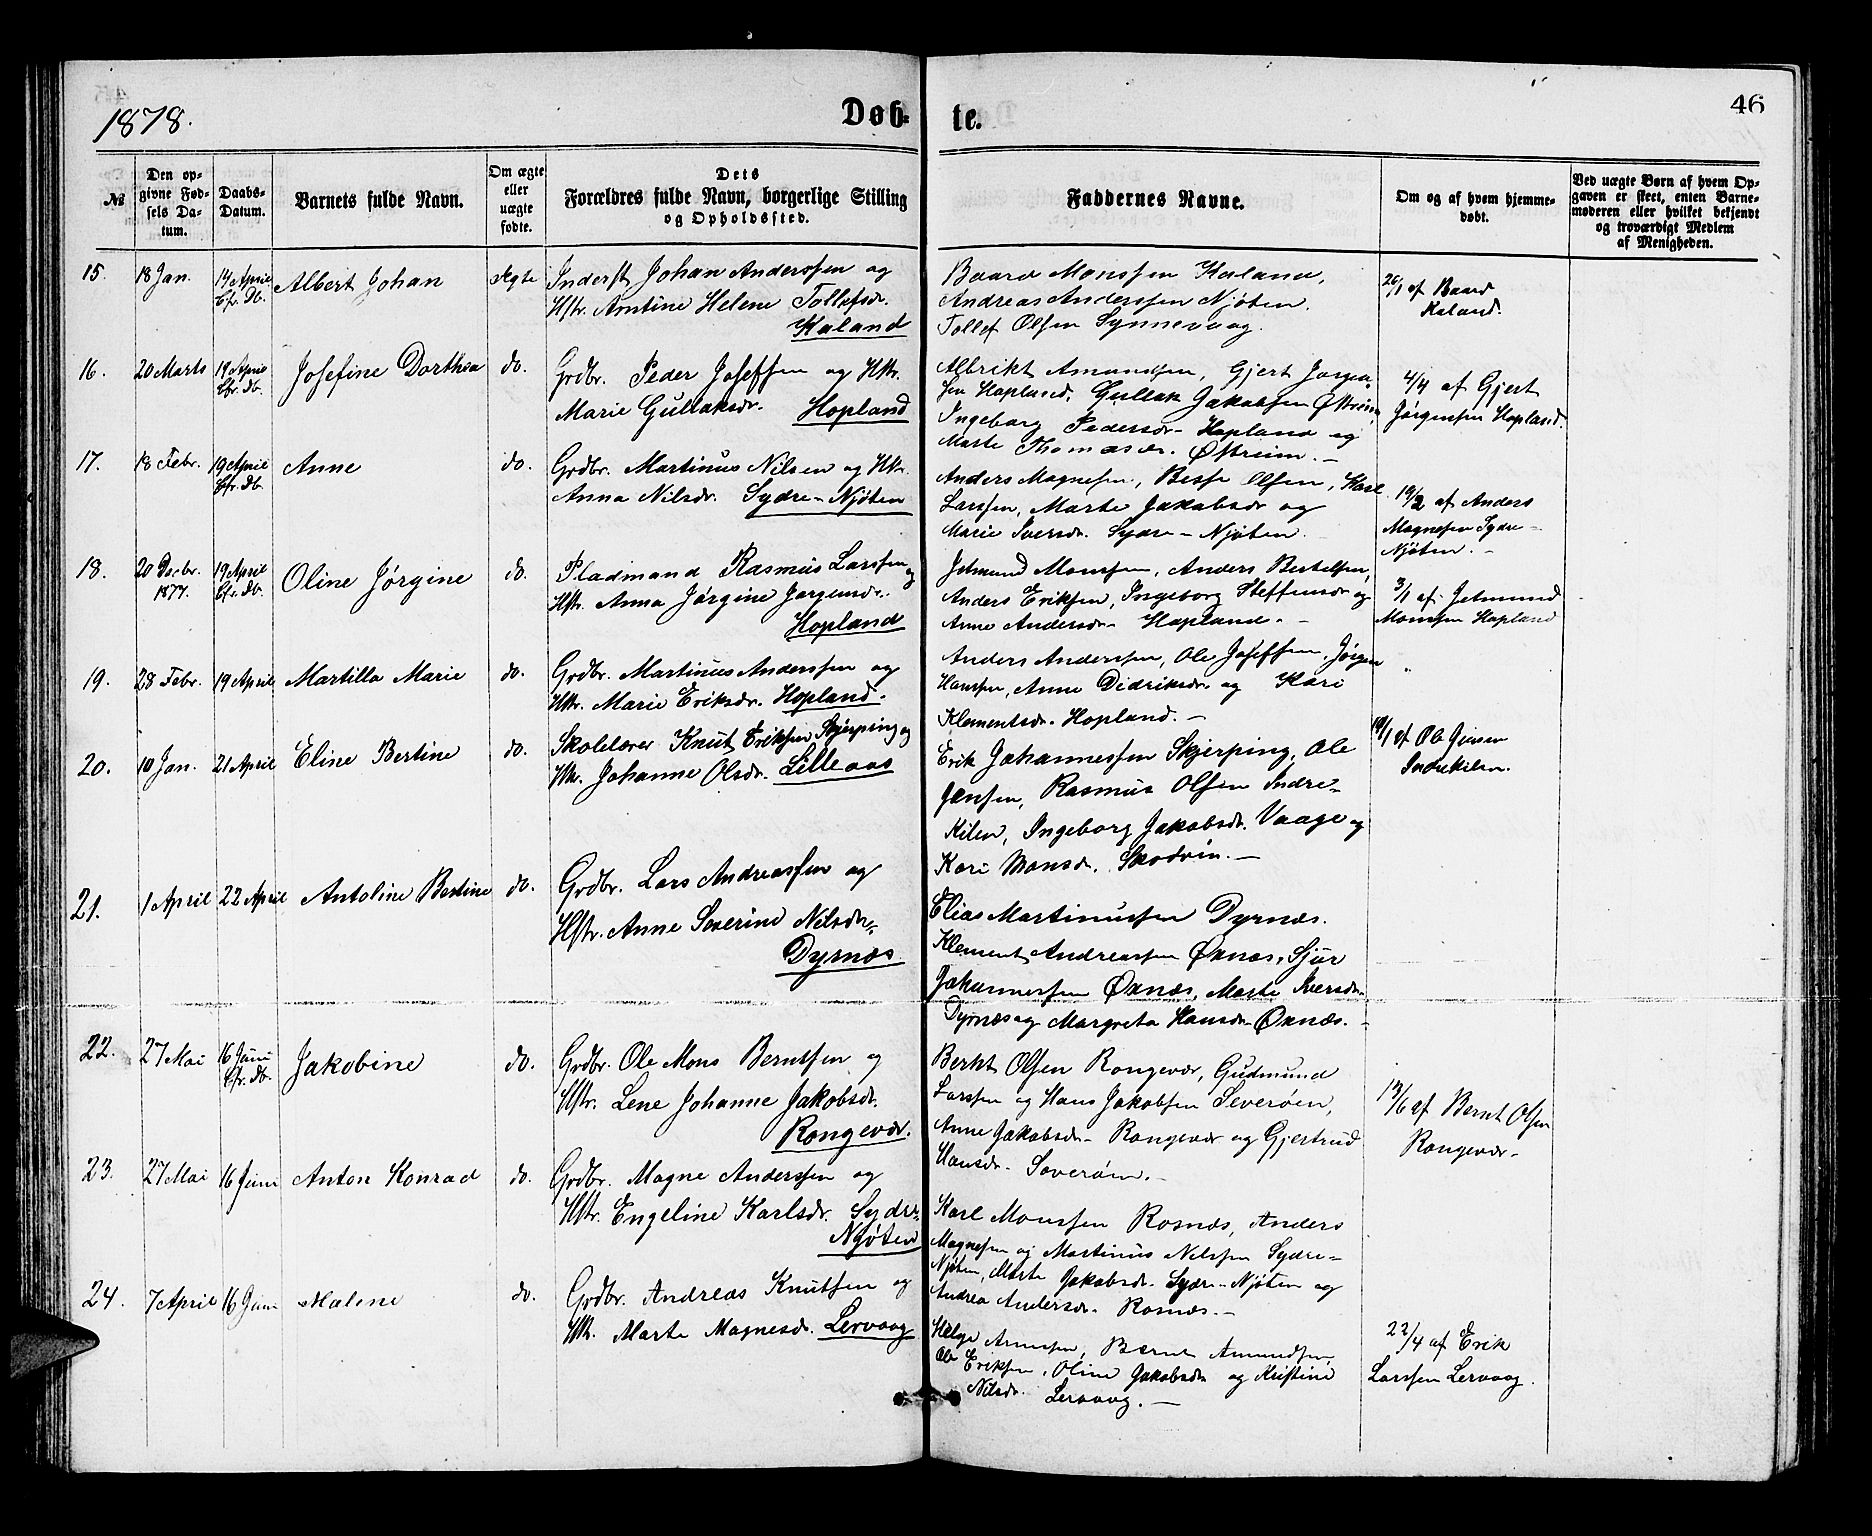 1878.
Døb-
te.
46
№
Den op-
givne Fød-
sels Da-
tum.
Daabs-
Datum.
Barnets fulde Navn.
Om ægte
eller
uægte
fødte.
Dets
Forældres fulde Navn, borgerlige Stilling
og Opholdssted.
Faddernes Navne.
Om og af hvem hjemme-
døbt.
Ved uægte Børn af hvem Op-
gaven er skeet, enten Barne-
moderen eller hvilket bekjendt
og troværdigt Medlem
af Menigheden.
15.
18 Jan.
14 April
Efr. Db.
Albert Johan
Ægte
Inderst Johan Anderssen og
Hstr. Antine Helene Tollefsdr.
Kaland
Baard Monssen Kaland,
Andreas Anderssen Njøten.
Tollef Olsen Synnevaag.
26/1 af Baard
Kaland.
16.
20 Marts
19 April
Efr. Db.
Josefine Dorthea
do.
Grdbr. Peder Josefsen og Hstr.
Marie Gullaksdr. Hopland
Albrikt Amundsen, Gjert Jørgen-
sen Hopland, Gullak Jakobsen Østreim,
Ingeborg Pedersdr. Hopland og
Marte Thomasdr. Østreim. —
4/4 af Gjert
Jørgensen Hopland.
17.
18 Febr.
19 April
Efr. Db.
Anne
do.
Grdbr. Martinus Nilsen og Hstr.
Anna Nilsdr. Sydre-Njøten
Anders Magnesen, Besse Olsen, Karl
Larssen, Marte Jakobsdr og
Marie Iversdr. Sydre-Njøten.
19/2 af Anders
Magnesen Sydre-
Njøten. —
18.
20 Decbr.
1877.
19 April
Efr. Db.
Oline Jørgine
do.
Pladsmand Rasmus Larssen og
Hstr. Anna Jørgine Jørgensdr.
Hopland
Jetmund Monssen, Anders Bertelsen,
Anders Eriksen, Ingeborg Steffensdr og
Anne Andersdr. Hopland. —
3/1 af Jetmund
Monssen Hopland
19.
28 Febr.
19 April
Martilla Marie
do.
Grdbr. Martinus Anderssen og
Hstr. Marie Eriksdr. Hopland.
Anders Anderssen, Ole Josefsen, Jørgen
Hanssen, Anne Didriksdr. og Kari
Klementsdr. Hopland. —
"
20.
10 Jan.
21 April
Eline Bertine
do.
Skolelærer Knut Eriksen Skjerping og
Hstr. Johanne Olsdr. Lilleaas
Erik Johannessen Skjerping, Ole
Jensen, Rasmus Olsen Indre-
Kilen, Ingeborg Jakobsdr. Vaage og
Kari Monsdr. Skodvin. —
19/1 af Ole Jensen
Indrekilen.
21.
1 April
22 April
Antoline Bertine
do.
Grdbr. Lars Andreassen og
Hstr. Anne Severine Nilsdr.
Dyrnæs
Elias Martinussen Dyrnæs.
Klement Andreassen Øxnæs, Sjur
Johannessen Øxnæs, Marte Iversdr.
Dyrnæs og Margreta Hansdr. Øxnæs. —
22.
27 Mai
16 Juni
Efr. Db.
Jakobine
do.
Grdbr. Ole Mons Berntsen og
Hstr. Lene Johanne Jakobsdr.
Rongevær.
Bernt Olsen Rongevær, Gudmund
Larssen og Hans Jakobsen Severøen,
Anne Jakobsdr. Rongevær og Gjertrud
Hansdr. Soverøen. —
13/6 af Bernt Olsen
Rongevær.
23.
27 Mai
16 Juni
Anton Konrad
do.
Grdbr. Magne Anderssen og
Hstr. Engeline Karlsdr. Sydre
Njøten
Karl Monssen Rosnæs, Anders
Magnesen og Martinus Nilssen Sydre-
Njøten, Marte Jakobsdr. Sydre-Njøten og
Andrea Andersdr. Rosnæs. —
24.
7 April
16 Juni
Malene
do.
Grdbr. Andreas Knutsen og
Hstr. Marte Magnesdr. Lervaag
Helge Arnesen, Bernt Amundsen,
Ole Eriksen, Oline Jakobsdr og Kristine
Nilsdr. Lervaag. —
22/4 af Erik
Larssen Lervaag.